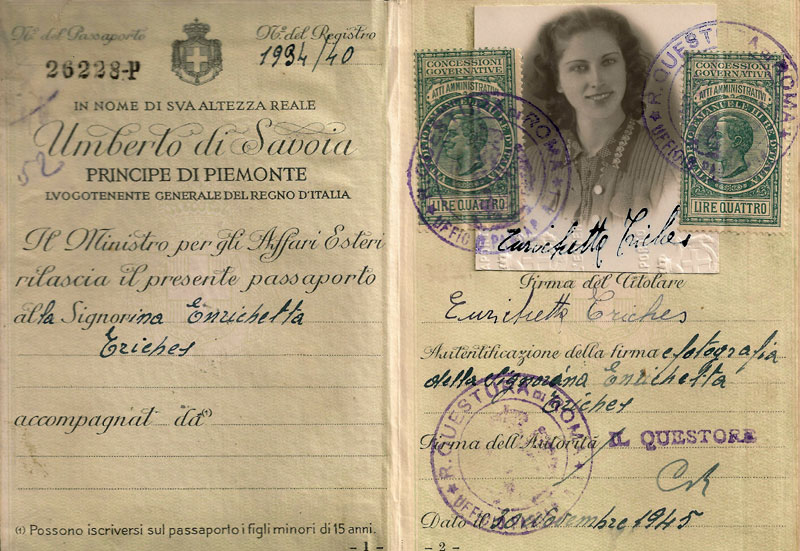 No. del Passaporto
No. del Registro
26228-P
1934/40
52
IN NOME DI SVA ALTEZZA REALE
Umberto di Savoia
PRINCIPE DI PIEMONTE
LVOGOTENENTE GENERALE DEL REGNO D'ITALIA
Il Ministro per gli Affari Esteri
rilascia il presente passaporto
alla Signorina Enrichetta
Eriches
accompagnat da(1)
(1) Possono iscriversi sul passaporto i figli minori di 15 anni.
- 1 -
CONCESSIONI
GOVERNATIVE
ATTI AMMINISTRATIVI
VITTORIO EMANUELE III RE D'ITALIA
LIRE QUATTRO
CONCESSIONI
GOVERNATIVE
ATTI AMMINISTRATIVI
VITTORIO EMANUELE III RE D'ITALIA
LIRE QUATTRO
R. QUESTURA DI ROMA
UFFICIO
R. QUESTURA DI ROMA
UFFICIO
Enrichetta Eriches
Firma del Titolare
Enrichetta Eriches
Autentificazione della firma e fotografia
della Signorina Enrichetta
Eriches
R. QUESTURA DI ROMA
UFFICIO
Firma dell'Autorità IL QUESTORE
Dato il 30 Novembre 1945
- 2 -